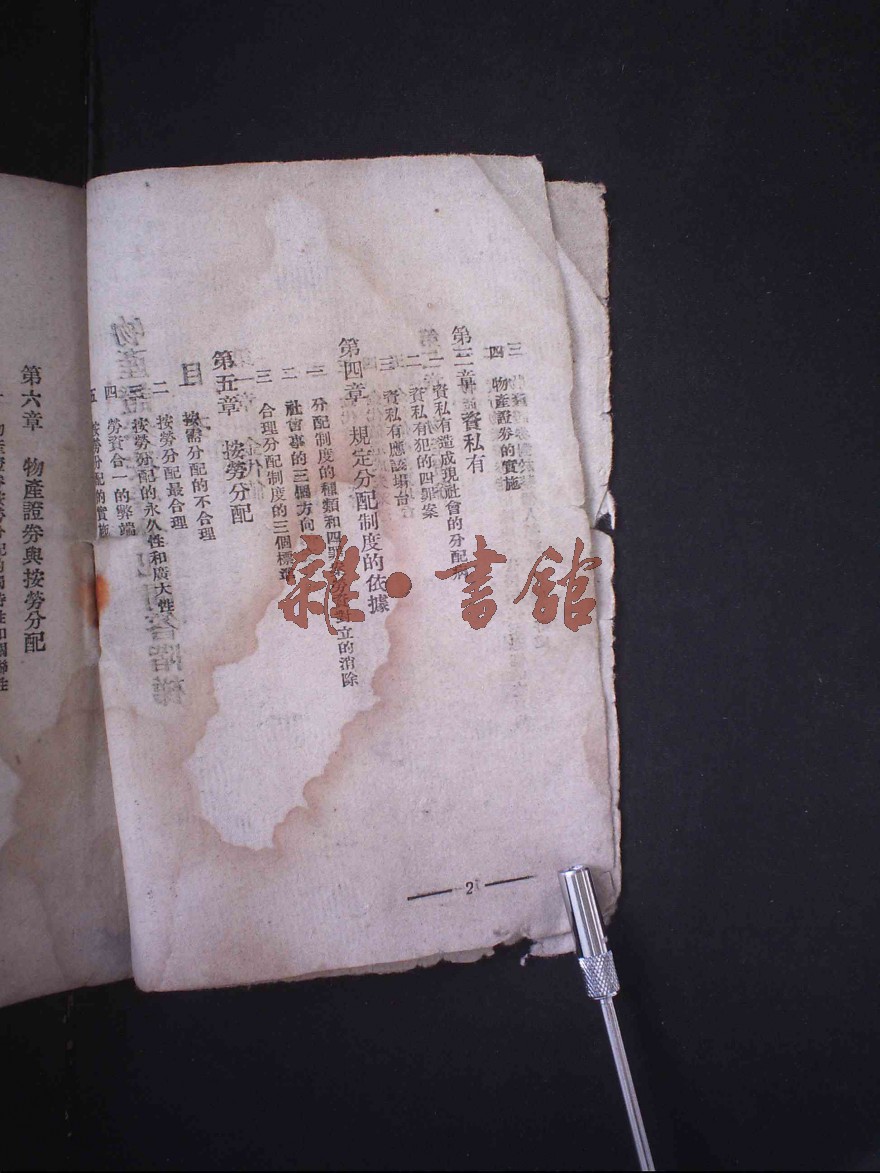 四 物產證券的實施
第三章 資私有
一 資私有造成現社會的分配病
二 資私有犯的四罪案
三 資私有應該塌台
第四章 規定分配制度的依據
一 分配制度的種類和四罪案勞資對立的消除
二 社會事的三個方向
三 合理分配制度的三個標準
第五章 按勞分配
一 按需分配的不合理
二 按勞分配最合理
三 按勞分配的永久性和廣大性
四 勞資合一的弊端
五 按勞分配的實施
2
第六章 物產證券與按勞分配
一 物產證券按勞分配的獨特性和關聯性
雜·書館